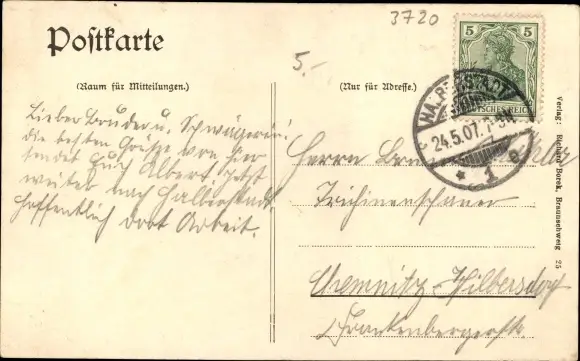 3720
Postkarte
5.-
(Raum für Mitteilungen.)
(Nur für Adresse.)
5 5
DEUTSCHES REICH
HALBERSTADT
24.5.07. 7-8N.
* 1 c
Lieber Bruder u. Schwägerin!
die besten Grüße von hier
sendet Euch Albert. Jetzt
weiter nach Halberstadt.
Hoffentlich dort Arbeit.
Herrn
Trichinenschauer
Chemnitz-Hilbersdorf
Frankenbergerstr.
Verlag: Richard Borek, Braunschweig 25